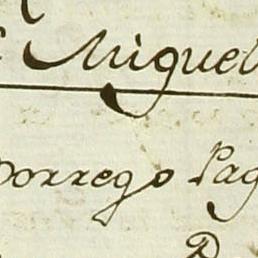 Miguel
Borrego Pag